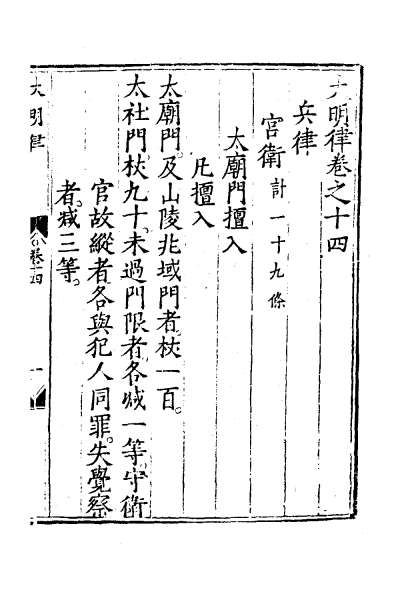 大明律卷之十四
兵律
宮衛計一十九條
太廟門擅入
凡擅入
太廟門。及山陵兆域門者。杖一百。
太社門。杖九十。未過門限者。各减一等。守衛
官故縱者。各與犯人同罪。失覺察
者。减三等。
大明律
卷十四
一